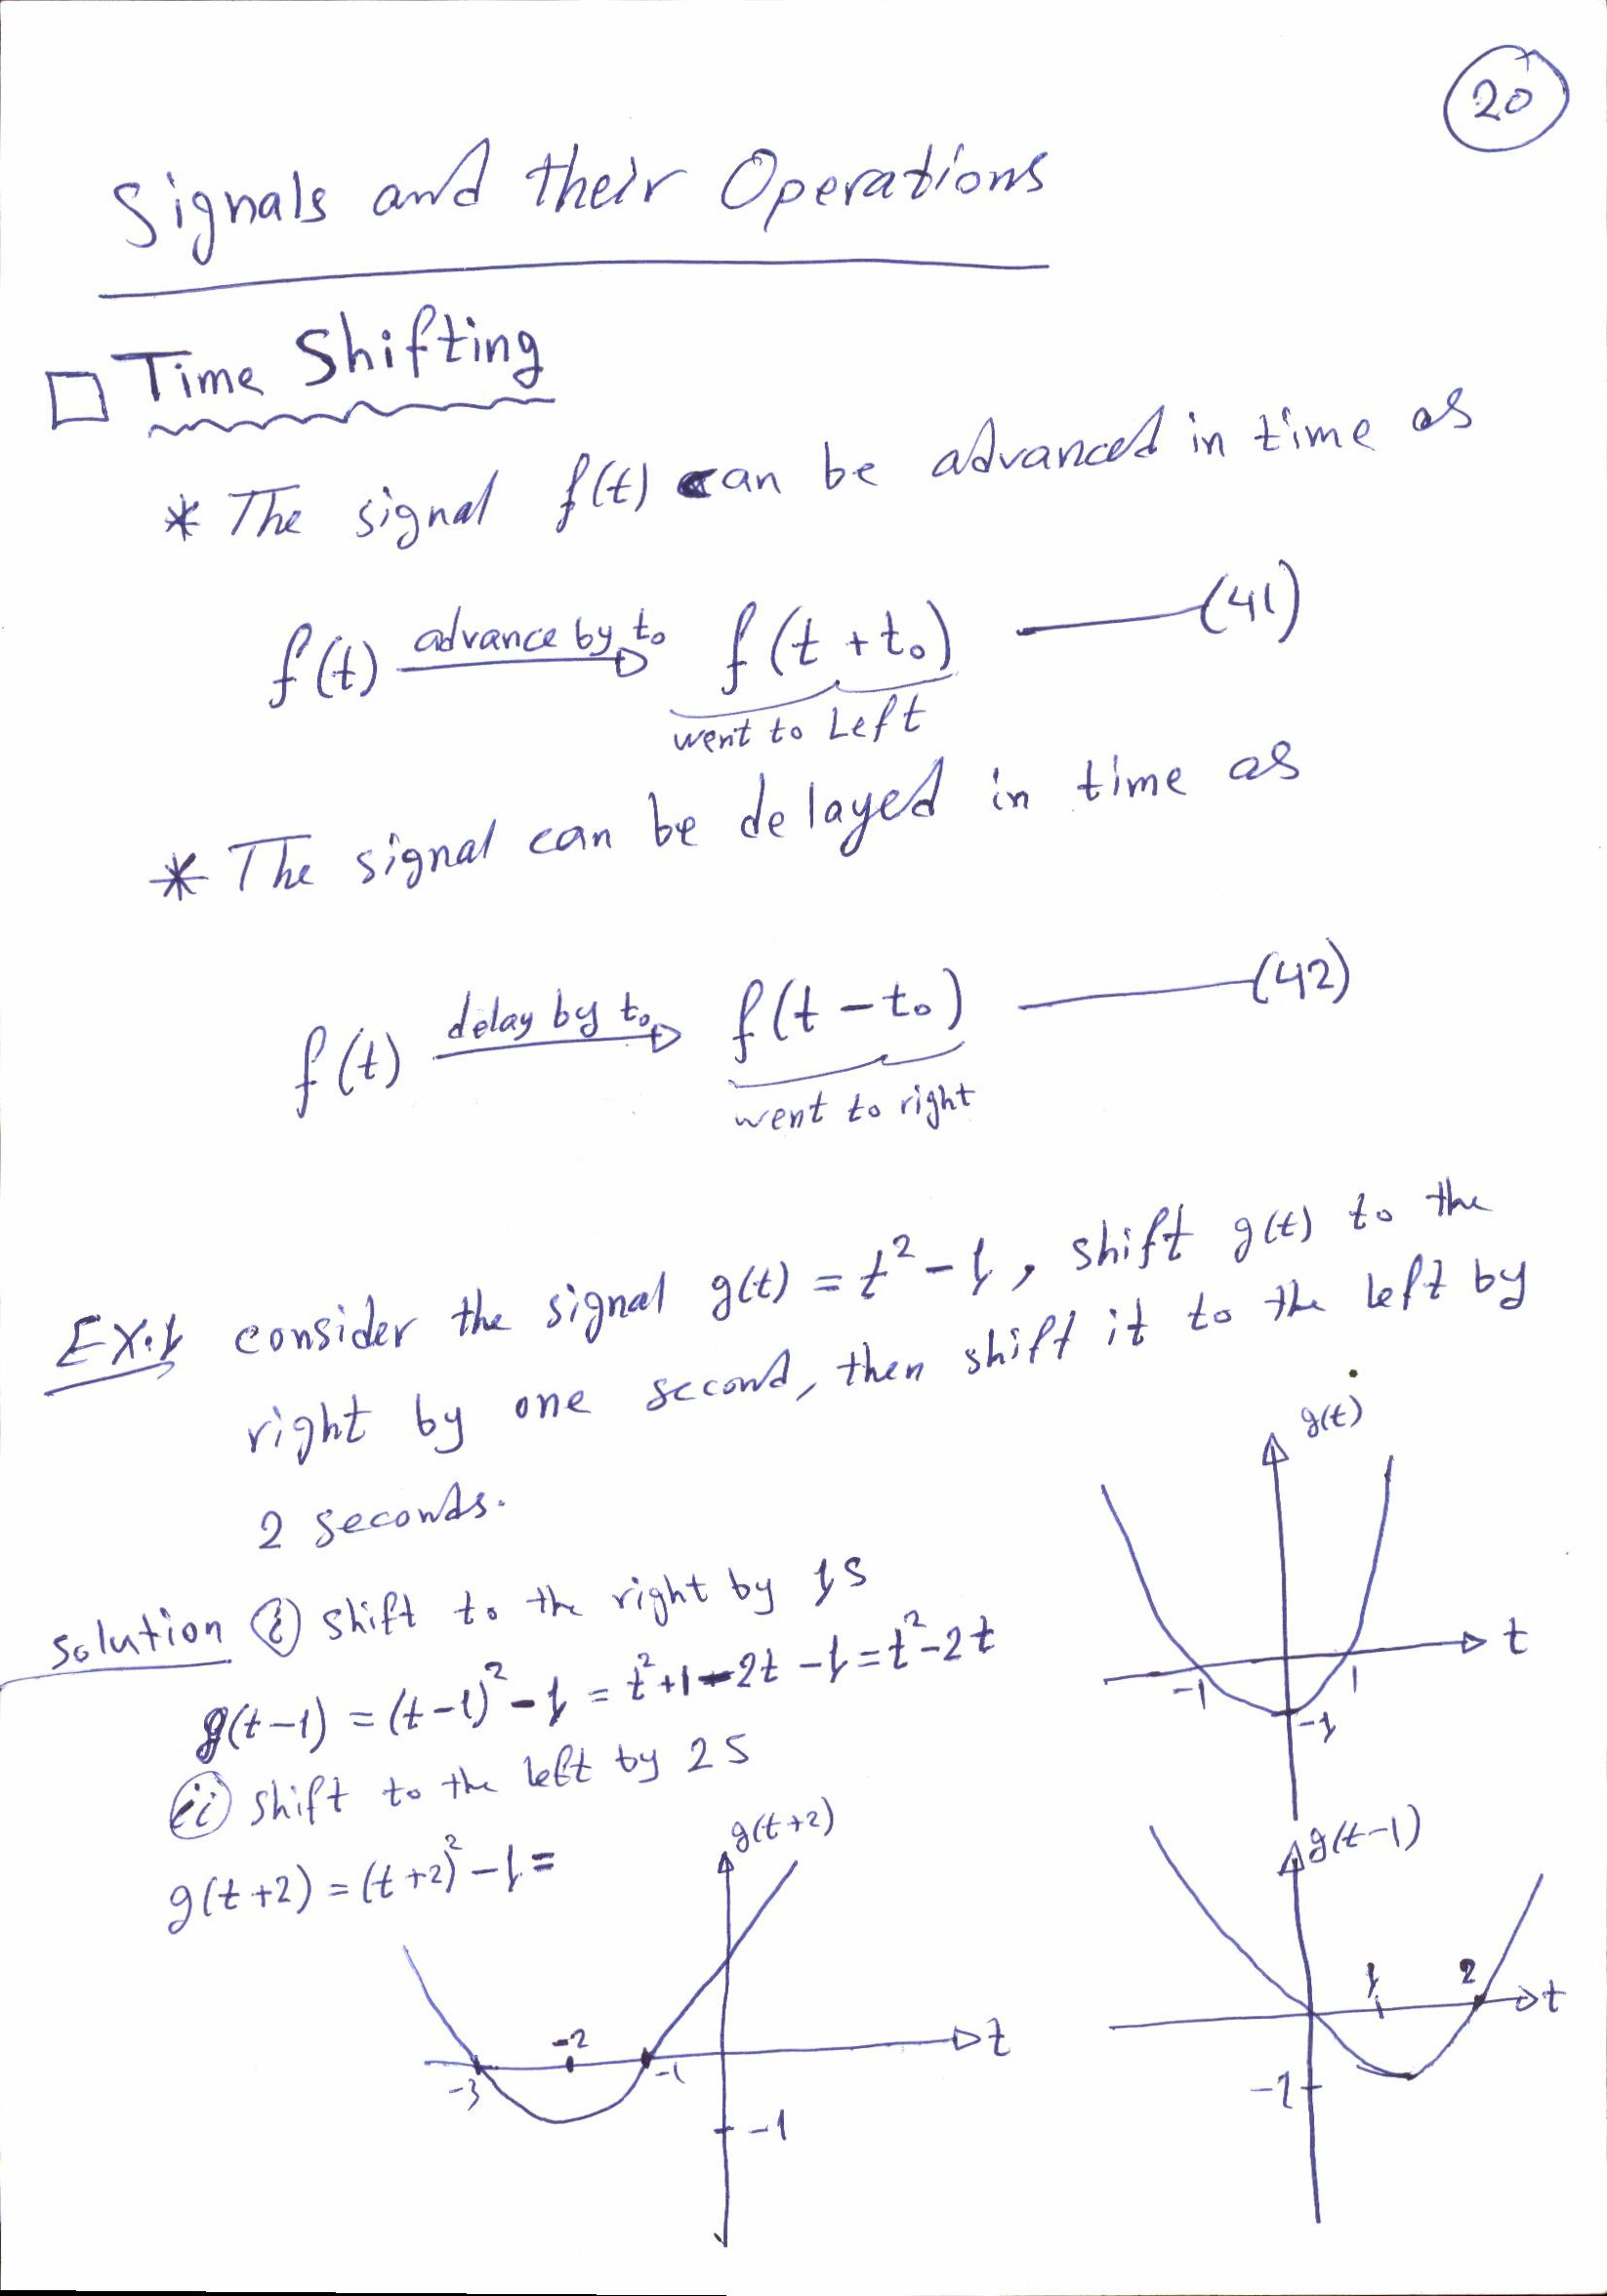 20
Signals and their Operations
Time Shifting
* The signal f(t) can be advanced in time as
f(t) advance by t₀ f(t + t₀) (41)
went to Left
* The signal can be delayed in time as
f(t) delay by t₀ f(t - t₀) (42)
went to right
EX:1 consider the signal g(t) = t² - 1, shift g(t) to the
right by one second, then shift it to the left by
2 seconds.
g(t)
t
-1
1
-1
solution i shift to the right by 1s
g(t-1) = (t-1)² - 1 = t² + 1 - 2t - 1 = t² - 2t
ii shift to the left by 2s
g(t+2) = (t+2)² - 1 =
g(t+2)
t
-3
-2
-1
-1
g(t-1)
1
2
t
-1